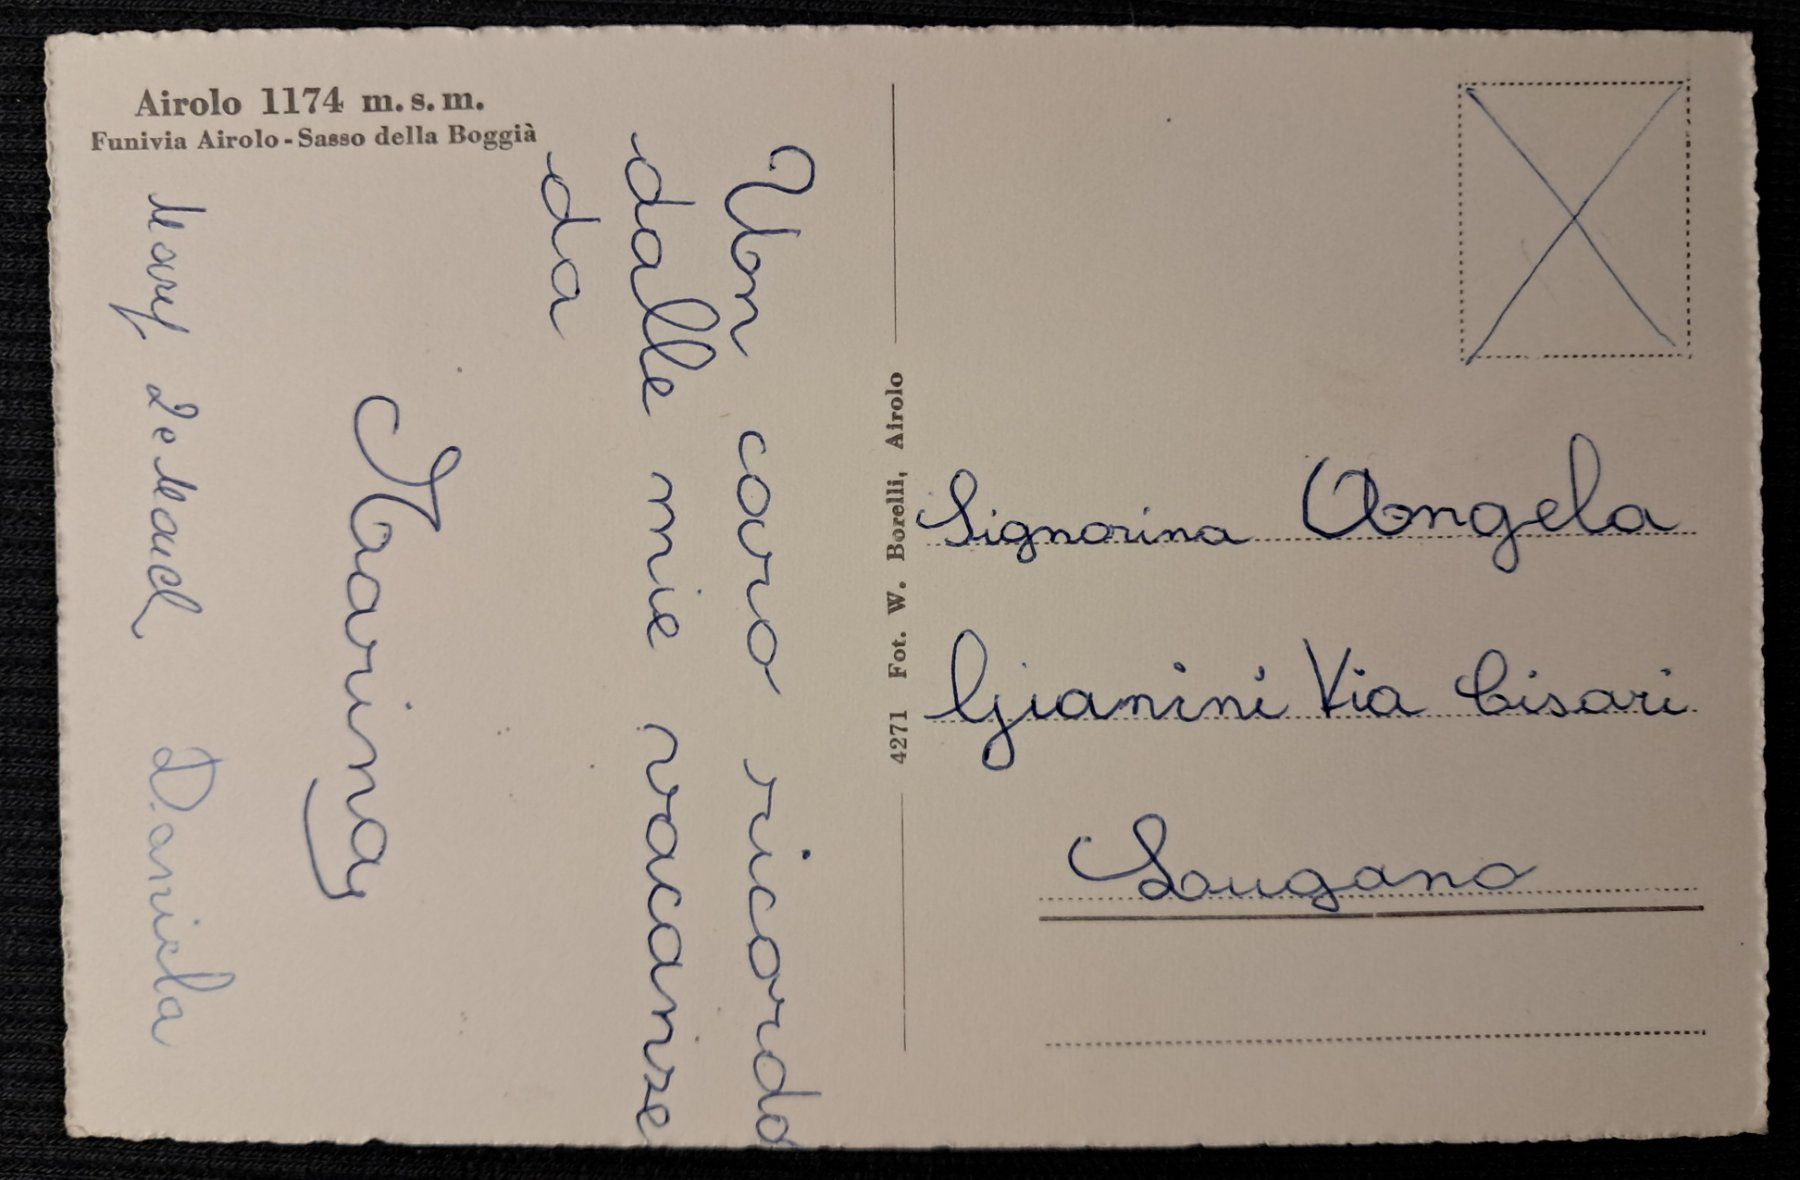 Airolo 1174 m.s.m.
Funivia Airolo-Sasso della Boggià
Un caro ricordo
dalle mie vacanze
da
Marina
Daniela
4271 Fot. W. Borelli, Airolo
Signorina Angela
Gianini Via Cisari
Lugano